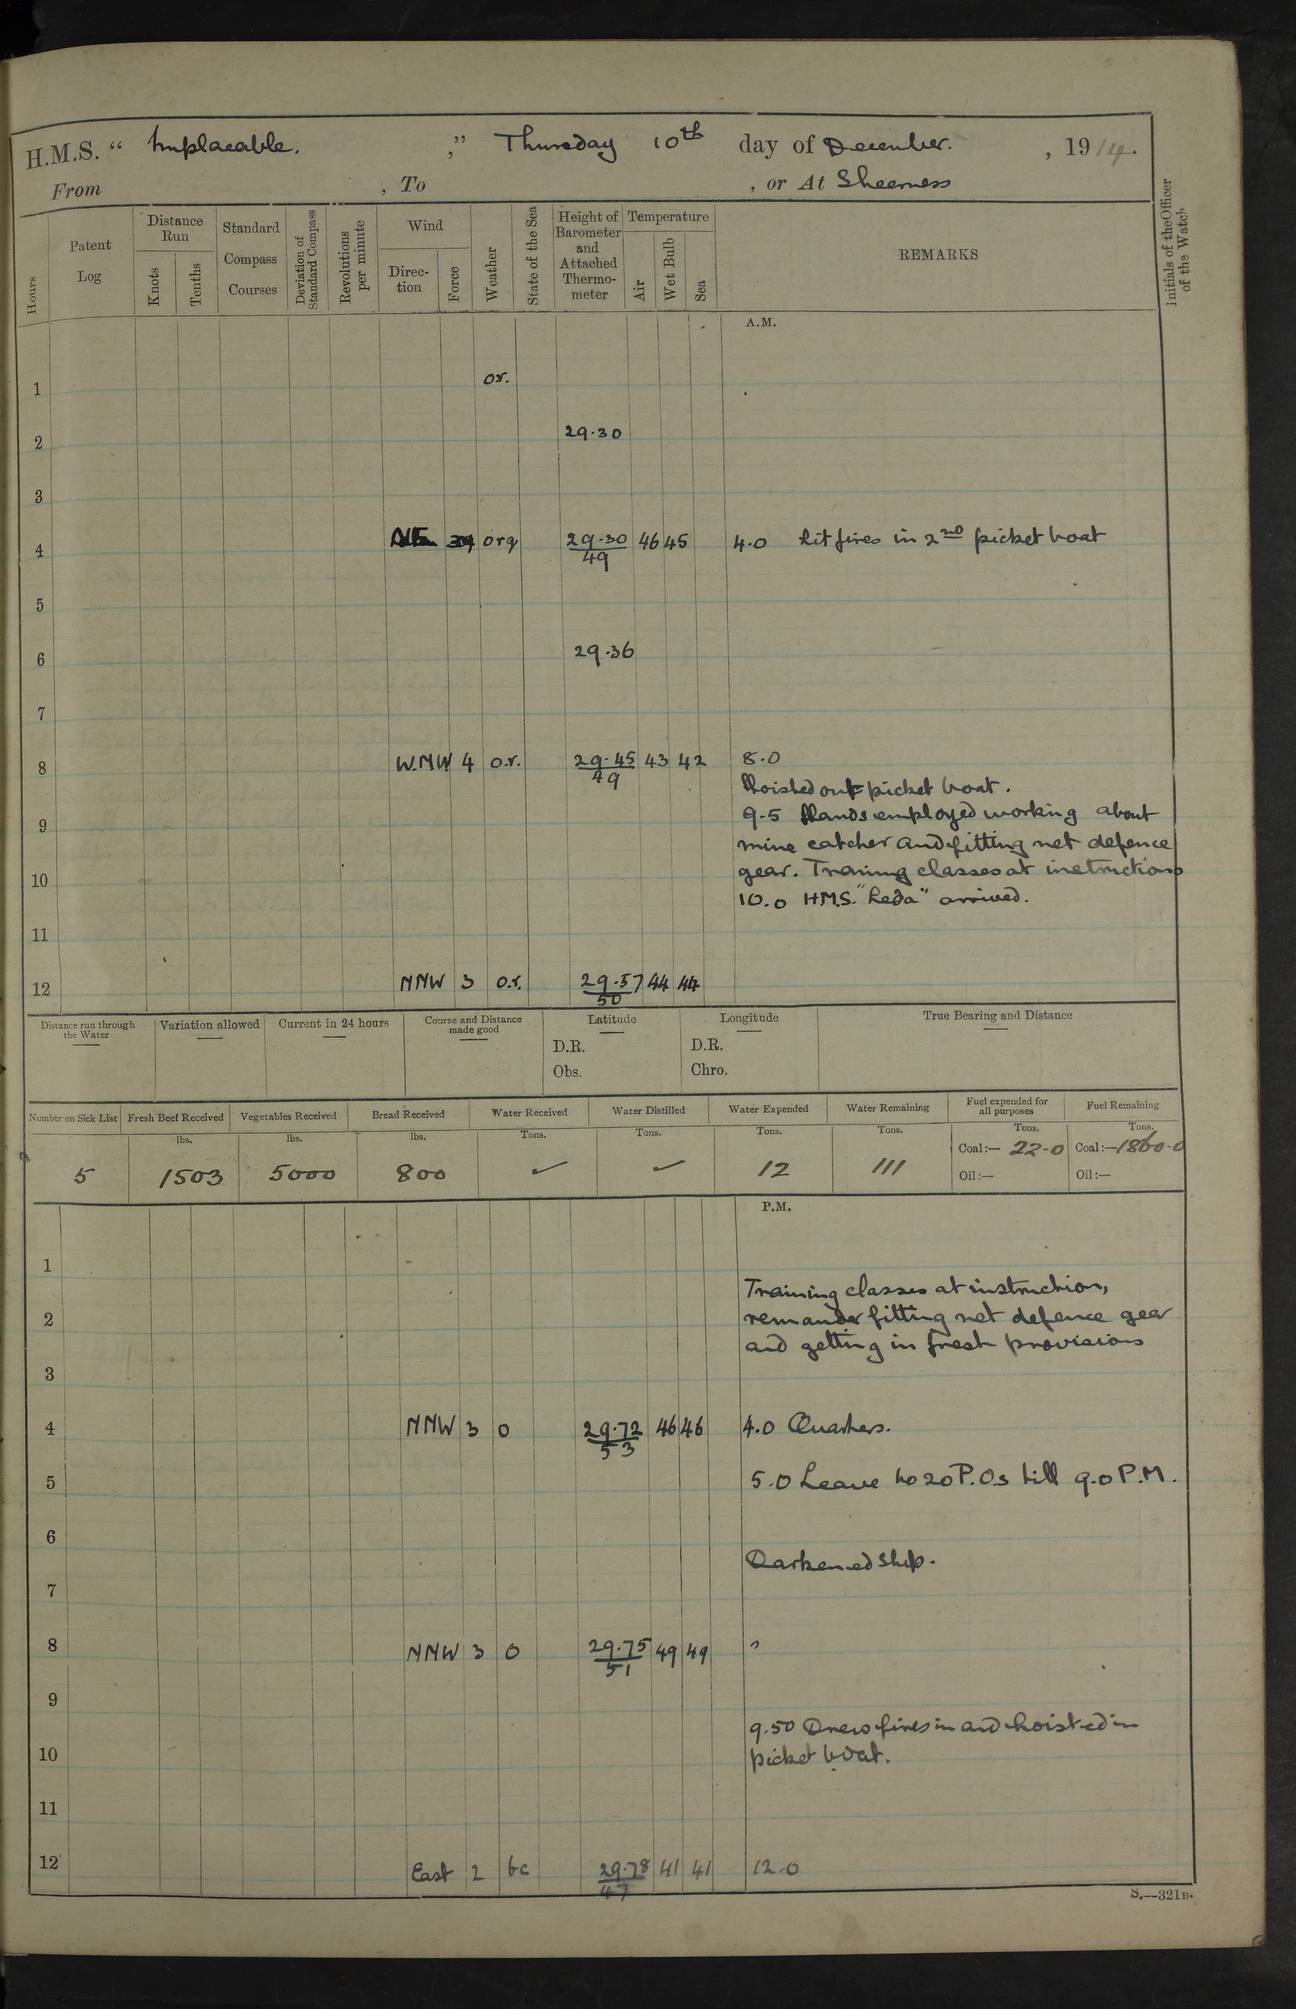 H.M.S. “ Implacable. ,” Thursday 10th day of December. , 1914.
From , To , or At Sheerness
Hours Patent Log Distance Run Knots Tenths Standard Compass Courses Deviation of Standard Compass Revolutions per minute Wind Direc-tion Force Weather State of the Sea Height of Barometer and Attached Thermo-meter Temperature Air Wet Bulb Sea REMARKS Initials of the Officer of the Watch
A.M.
1 o.r.
2 29.30
3
4 org 29.30 49 46 45 4.0 Lit fires in 2nd picket boat
5
6 29.36
7
8 W.NW 4 o.r. 29.45 49 43 42 8.0
Hoisted out picket boat.
9 9-5 Hands employed working about
mine catcher and fitting net defence
10 gear. Training classes at instructions
10.0 H.M.S. "Leda" arrived.
11
12 NNW 3 o.r. 29.57 50 44 44
Distance run through the Water Variation allowed Current in 24 hours Course and Distance made good Latitude Longitude True Bearing and Distance
D.R. D.R.
Obs. Chro.
Number on Sick List Fresh Beef Received Vegetables Received Bread Received Water Received Water Distilled Water Expended Water Remaining Fuel expended for all purposes Fuel Remaining
lbs. lbs. lbs. Tons. Tons. Tons. Tons. Tons. Tons.
5 1503 5000 800 ✓ ✓ 12 111 Coal:— 22-0 Coal:—1860-0
Oil:— Oil:—
P.M.
1
Training classes at instruction,
2 remainder fitting net defence gear
and getting in fresh provisions
3
4 NNW 3 o 29.72 53 46 46 4.0 Quarters.
5 5.0 Leave to 20 P.Os till 9.0 P.M.
6
Darkened ship.
7
8 NNW 3 o 29.75 51 49 49
9
9.50 Drew fires in and hoisted in
10 picket boat.
11
12 East 2 bc 29.78 47 41 41 12.0
S.—321B.